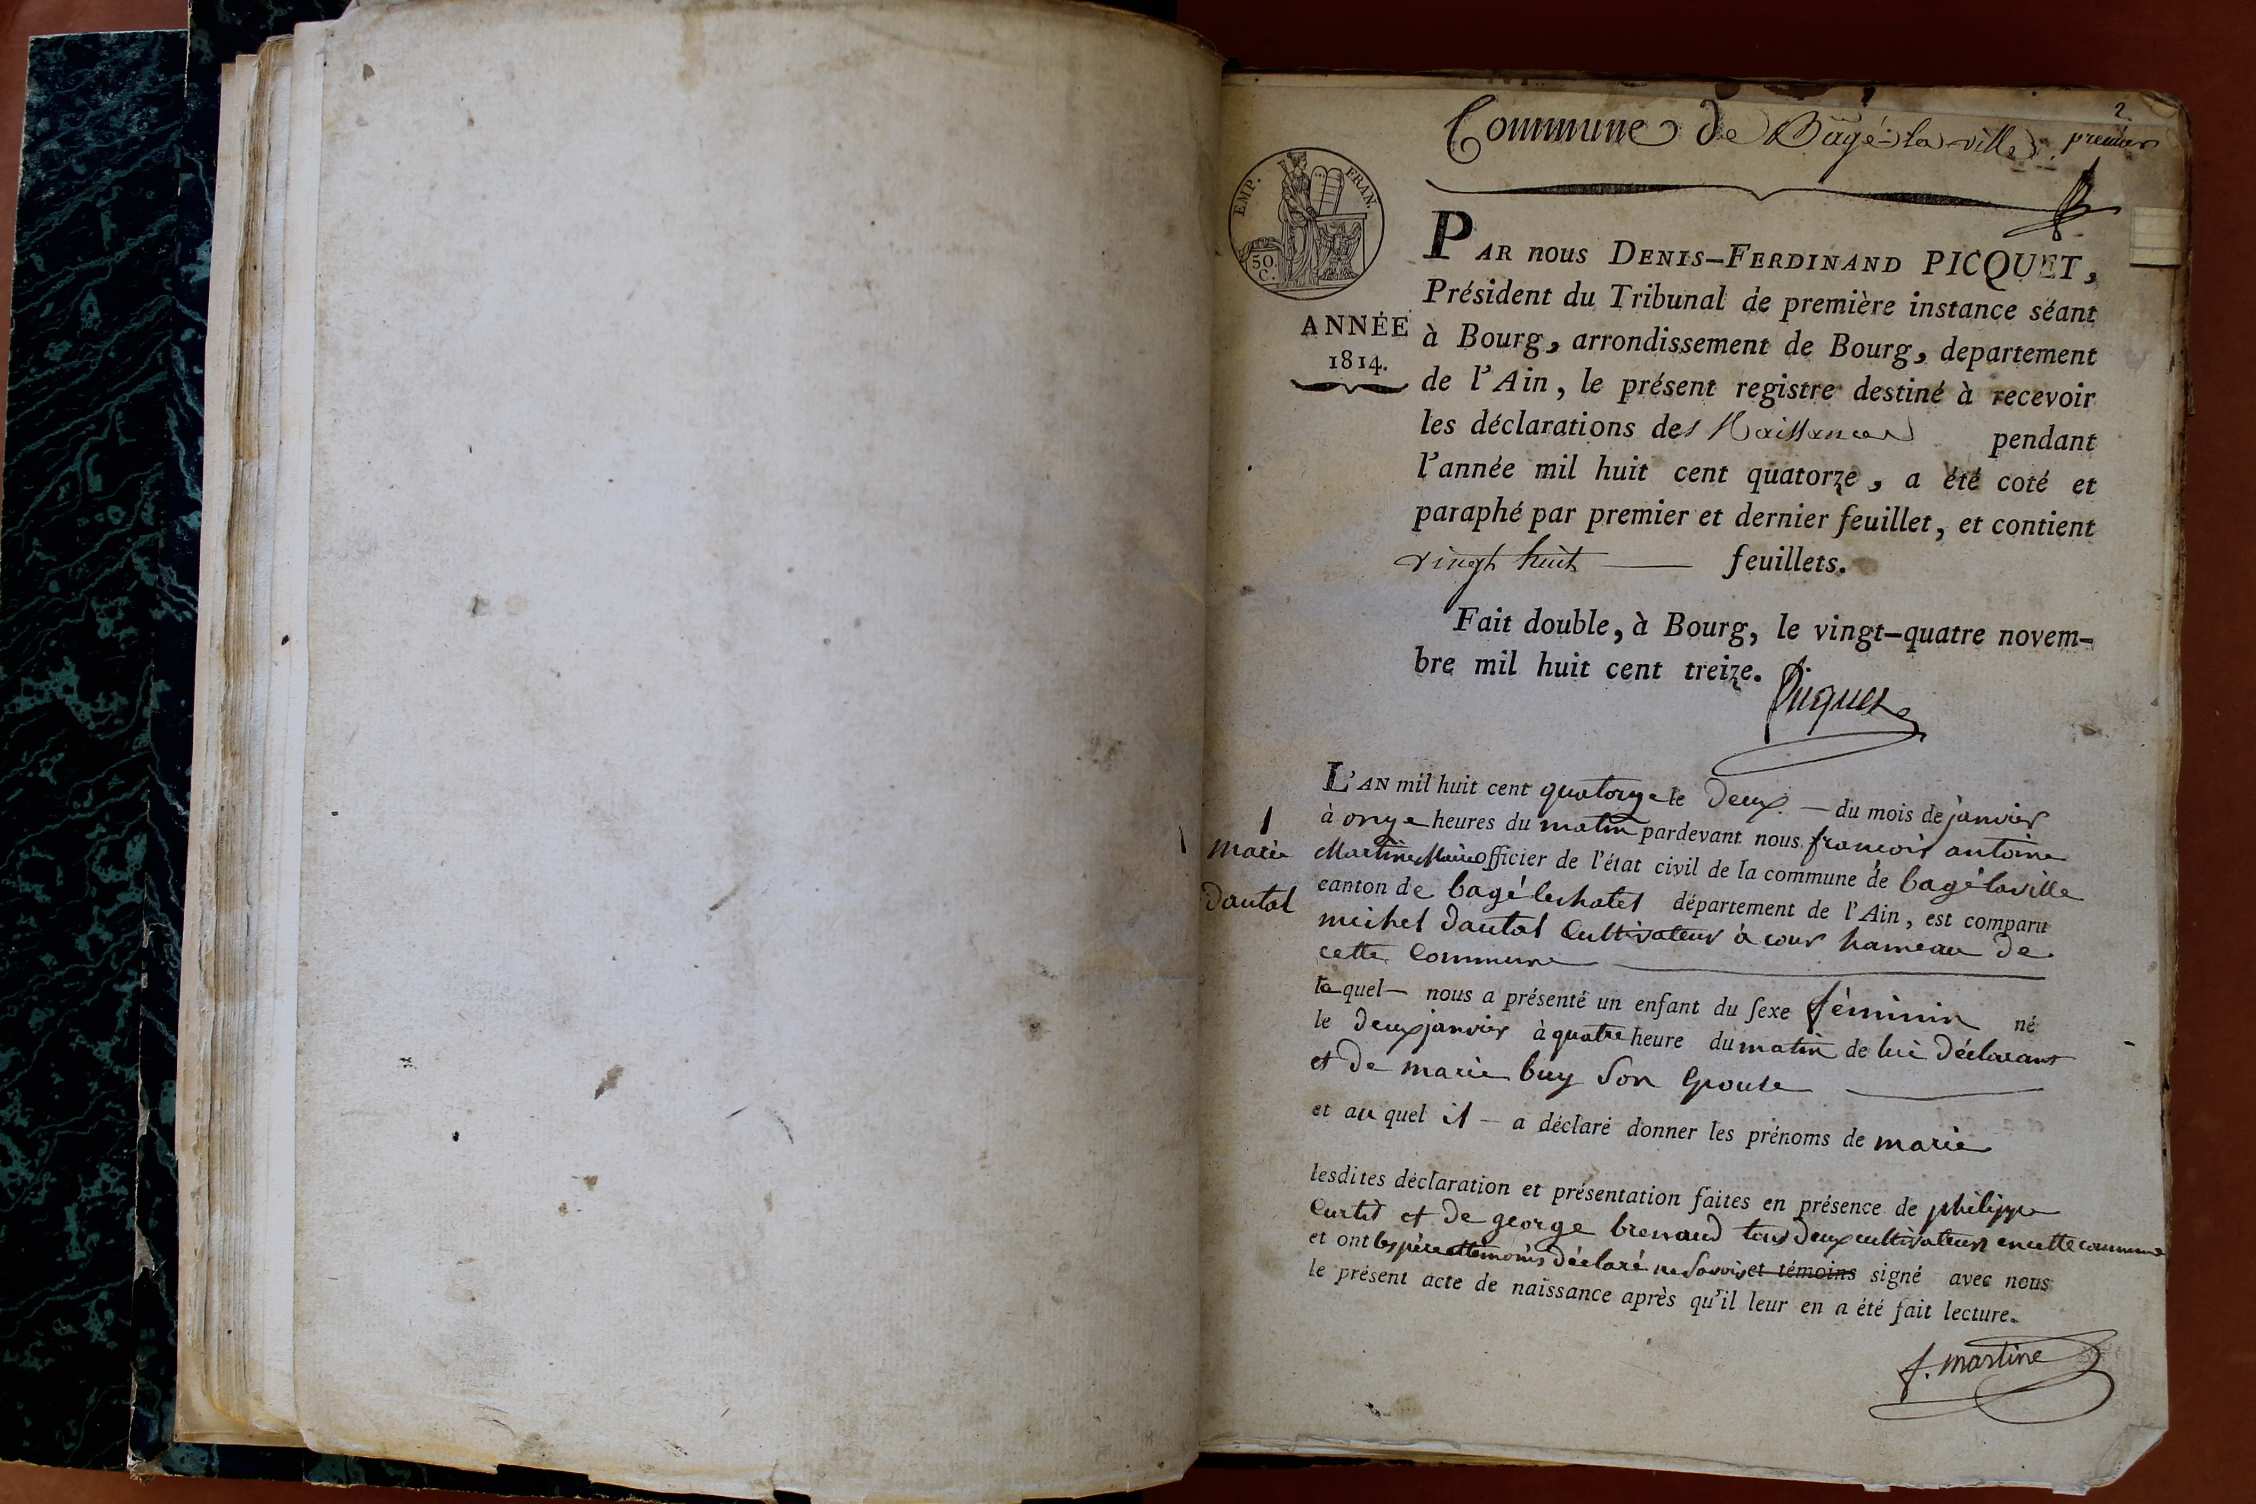 2.
Commune de Bâgé-la-ville. premier
EMP. FRAN.
50
C.
PAR nous DENIS-FERDINAND PICQUET,
Président du Tribunal de première instance séant
ANNÉE
1814.
à Bourg, arrondissement de Bourg, departement
de l'Ain, le présent registre destiné à recevoir
les déclarations des Naissances pendant
l'année mil huit cent quatorze, a été coté et
paraphé par premier et dernier feuillet, et contient
vingt huit — feuillets.
Fait double, à Bourg, le vingt-quatre novem-
bre mil huit cent treize.
Picquet
L'AN mil huit cent quatorze le deux — du mois de janvier
à onze heures du matin pardevant nous françois antoine
1
marie
dautal
Martine Maire officier de l'état civil de la commune de bagé laville
canton de bagé lechatel département de l'Ain, est comparu
michel dautal Cultivateur à cour hameau de
cette Commune
lequel — nous a présenté un enfant du sexe féminin né
le deux janvier à quatre heure du matin de lui déclarant
et de marie buy Son Epouse
et au quel il — a déclaré donner les prénoms de marie
lesdites déclaration et présentation faites en présence de philippe
Curtil et de george brevaud tous deux cultivateurs en cette commune
et ont les père et témoins déclaré ne Savoir et témoins signé avec nous
le présent acte de naissance après qu'il leur en a été fait lecture.
f. martine